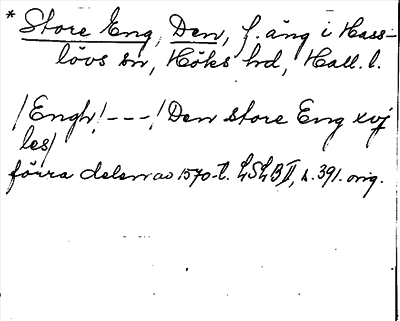 * Store Eng, Den, f. äng i Hass-
lövs sn, Höks hd, Hall. l.
/Engh/---/Den store Eng xvj
les/
förra delen av 1570-t. LSLB II, s. 391. orig.